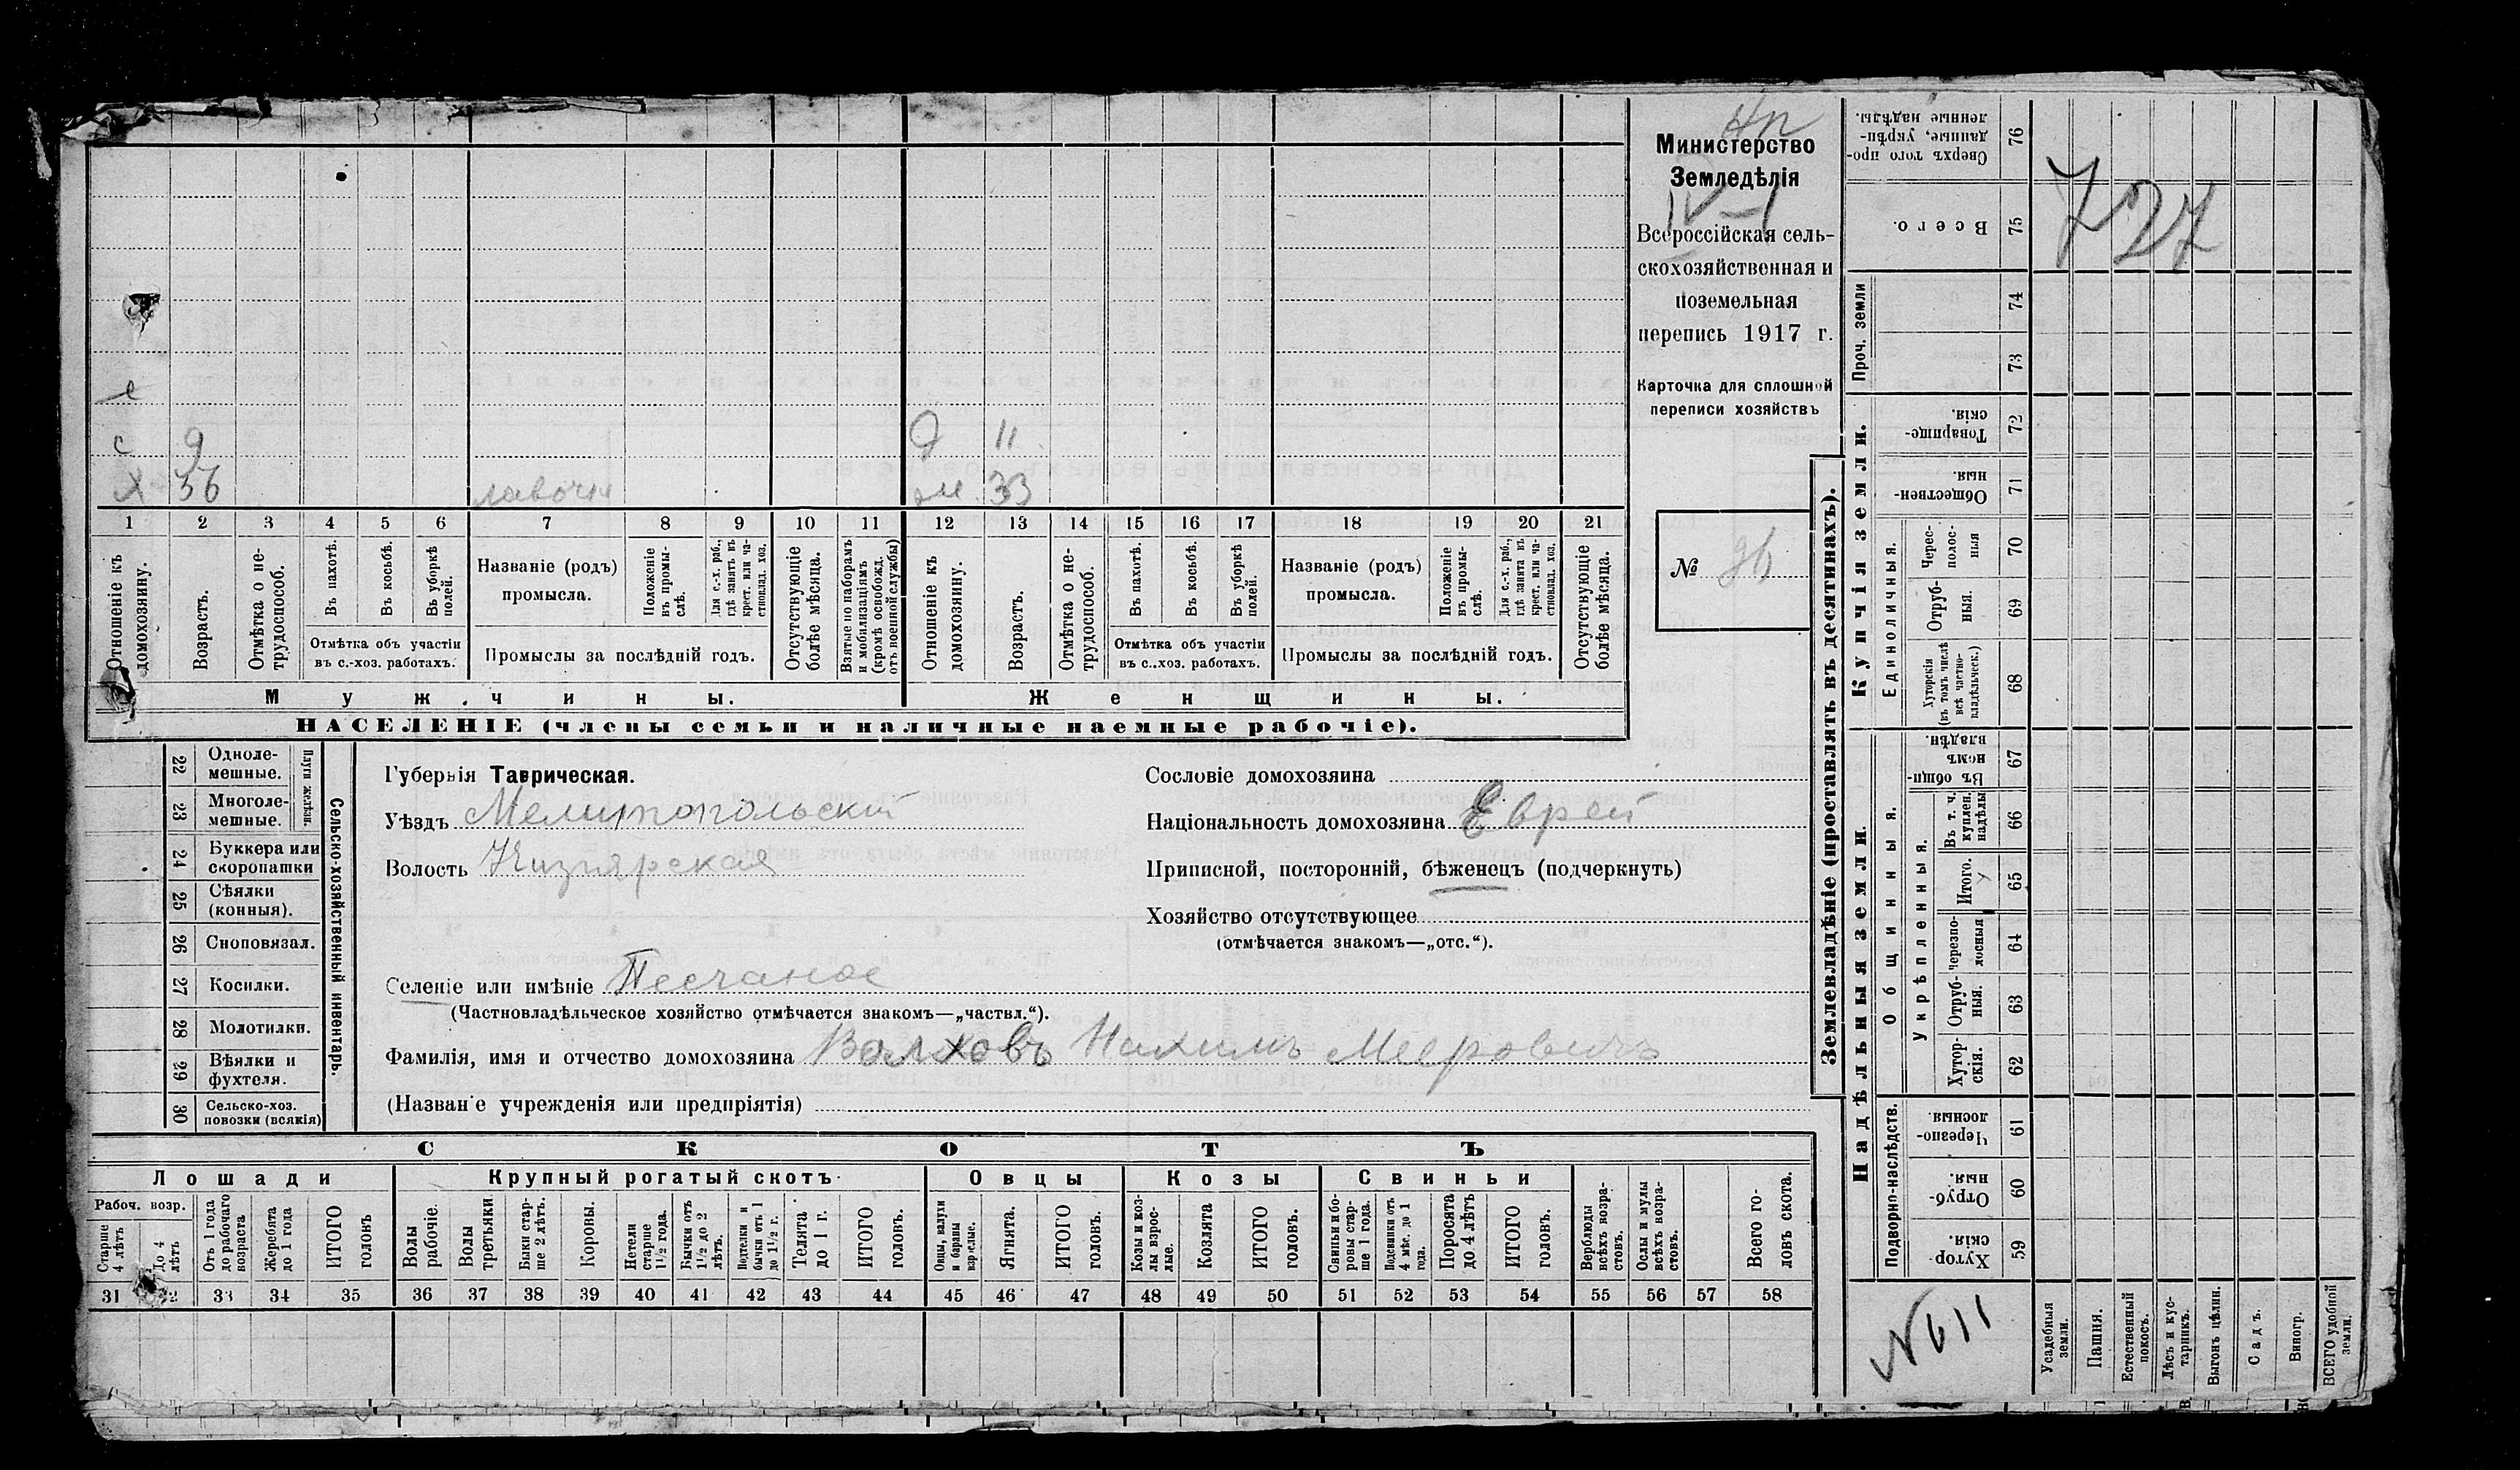 Нп
Министерство
Земледѣлія
IV–I
Всероссійская сель-
скохозяйственная и
поземельная
перепись 1917 г.
Карточка для сплошной
переписи хозяйствъ
№ 96
727
с 9 д 11
х 36 лавочн м. 33
1 2 3 4 5 6 7 8 9 10 11 12 13 14 15 16 17 18 19 20 21
Отношеніе къ домохозяину.
Возрастъ.
Отмѣтка о не-трудоспособ.
Въ пахотѣ.
Въ косьбѣ.
Въ уборкѣ полей.
Отмѣтка объ участіи
въ с.-хоз. работахъ.
Названіе (родъ)
промысла.
Положеніе въ промы-слѣ.
Для с.-х. раб., гдѣ занятъ въ крест. или ча-стновлад. хоз.
Промыслы за послѣдній годъ.
Отсутствующіе болѣе мѣсяца.
Взятые по наборамъ и мобилизаціямъ (кромѣ освобожд. отъ военной службы)
Отношеніе къ домохозяину.
Возрастъ.
Отмѣтка о не-трудоспособ.
Въ пахотѣ.
Въ косьбѣ.
Въ уборкѣ полей.
Отмѣтка объ участіи
въ с..хоз. работахъ.
Названіе (родъ)
промысла.
Положеніе въ промы-слѣ.
Для с.-х. раб., гдѣ занята въ крест. или ча-стновлад. хоз.
Промыслы за послѣдній годъ.
Отсутствующіе болѣе мѣсяца.
Мужчины. Женщины.
НАСЕЛЕНІЕ (члены семьи и наличные наемные рабочіе).
22 Одноле-мешные.
23 Многоле-мешные.
Плуги желѣзн.
24 Буккера или скоропашки
25 Сѣялки (конныя).
26 Сноповязал.
27 Косилки.
28 Молотилки.
29 Вѣялки и фухтеля.
30 Сельско-хоз. повозки (всякія)
Сельско-хозяйственный инвентарь.
Губернія Таврическая.
Уѣздъ Мелитопольскій
Волость Кизіярская
Сословіе домохозяина
Національность домохозяина Еврей
Приписной, посторонній, бѣженецъ (подчеркнуть)
Хозяйство отсутствующее
(отмѣчается знакомъ—„отс.“).
Селеніе или имѣніе Песчаное
(Частновладѣльческое хозяйство отмѣчается знакомъ—„частвл.“).
Фамилія, имя и отчество домохозяина Волховъ Нахимъ Мееровичъ
(Названіе учрежденія или предпріятія)
СКОТЪ
Лошади Крупный рогатый скотъ Овцы Козы Свиньи
Рабоч. возр.
Старше 4 лѣтъ
До 4 лѣтъ
Отъ 1 года до рабочаго возраста
Жеребята до 1 года
ИТОГО головъ
Волы рабочіе.
Волы третьяки.
Быки стар-ше 2 лѣтъ.
Коровы.
Нетели старше 1½ года.
Бычки отъ 1½ до 2 лѣтъ.
Подтелки и бычки отъ 1 до 1½ г.
Телята до 1 г.
ИТОГО головъ.
Овцы, валухи и бараны взрослые.
Ягнята.
ИТОГО головъ.
Козы и коз-лы взрос-лые.
Козлята
ИТОГО головъ.
Свиньи и бо-ровы стар-ше 1 года.
Подсвинки отъ 4 мѣс. до 1 года.
Поросята до 4 лѣтъ
ИТОГО головъ.
Верблюды всѣхъ возра-стовъ.
Ослы и мулы всѣхъ возра-стовъ.
Всего го-ловъ скота.
31 32 33 34 35 36 37 38 39 40 41 42 43 44 45 46 47 48 49 50 51 52 53 54 55 56 57 58
Землевладѣніе (проставлять въ десятинахъ).
Сверхъ того про-данные, укрѣп-ленные надѣлы. 76
Всего. 75
Проч. земли 74 73
Купчія земли.
Товарище-скія. 72
Обществен-ныя. 71
Единоличныя.
Черес-полос-ныя 70
Отруб-ныя. 69
Хуторскія (въ томъ числѣ всѣ частно-владѣльческ.) 68
Надѣльныя земли.
Общинныя.
Въ общин-номъ владѣн. 67
Укрѣпленныя.
Въ т. ч. куплен. надѣлы 66
Итого. 65
Черезпо-лосныя 64
Отруб-ныя. 63
Хутор-скія. 62
Подворно-наслѣдств.
Черезпо-лосныя. 61
Отруб-ныя. 60
Хутор-скія. 59
N611
Усадебныя земли.
Пашня.
Естественный покосъ.
Лѣсъ и кус-тарникъ.
Выгонъ цѣлин.
Садъ.
Виногр.
ВСЕГО удобной земли.